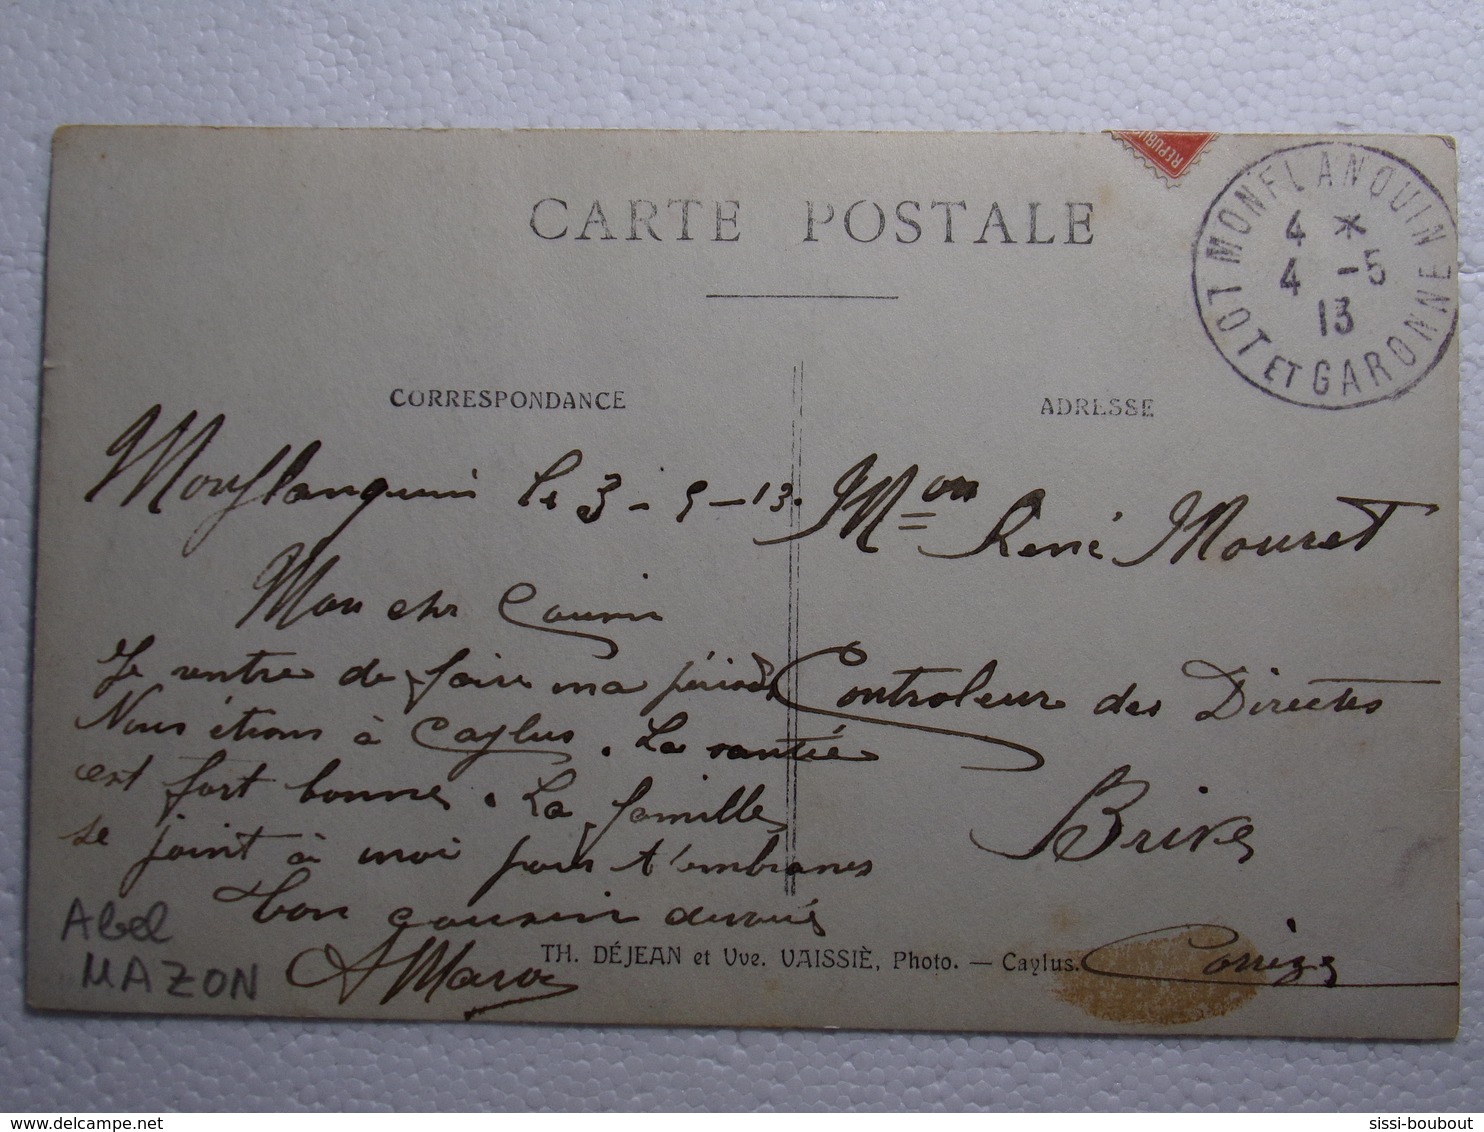 REPUBLIC
CARTE POSTALE
MONFLANQUIN
4 *
4 -5
13
LOT ET GARONNE
CORRESPONDANCE
ADRESSE
Monflanquin le 3-5-13.
Mon cher Cousin
Je rentre de faire ma période
Nous étions à Caylus. La santée
est fort bonne. La famille
se joint à moi pour t'embrasser
ton cousin dévoué
A Mazon
Abel
MAZON
Mon René Mouret
Controleur des Directes
Brive
Corrèze
TH. DÉJEAN et Vve. VAISSIÈ, Photo. — Caylus.
sissi-boubout